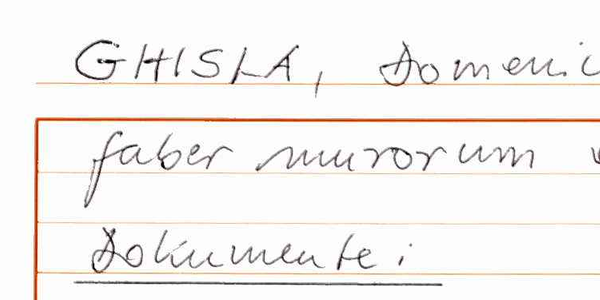 GHISLA, Domenic
faber murorum
Dokumente: